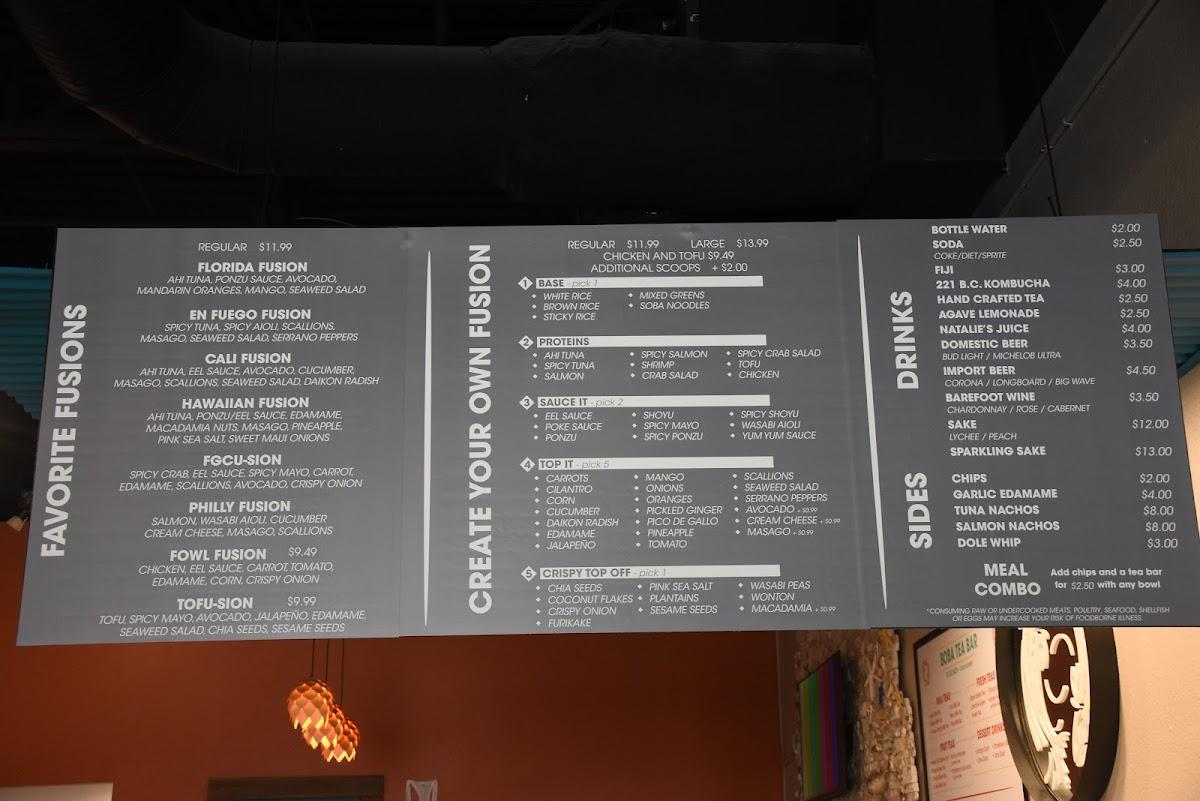 FAVORITE FUSIONS
REGULAR $11.99
FLORIDA FUSION
AHI TUNA, PONZU SAUCE, AVOCADO,
MANDARIN ORANGES, MANGO, SEAWEED SALAD
EN FUEGO FUSION
SPICY TUNA, SPICY AIOLI, SCALLIONS,
MASAGO, SEAWEED SALAD, SERRANO PEPPERS
CALI FUSION
AHI TUNA, EEL SAUCE, AVOCADO, CUCUMBER,
MASAGO, SCALLIONS, SEAWEED SALAD, DAIKON RADISH
HAWAIIAN FUSION
AHI TUNA, PONZU/EEL SAUCE, EDAMAME,
MACADAMIA NUTS, MASAGO, PINEAPPLE,
PINK SEA SALT, SWEET MAUI ONIONS
FGCU-SION
SPICY CRAB, EEL SAUCE, SPICY MAYO, CARROT,
EDAMAME, SCALLIONS, AVOCADO, CRISPY ONION
PHILLY FUSION
SALMON, WASABI AIOLI, CUCUMBER
CREAM CHEESE, MASAGO, SCALLIONS
FOWL FUSION $9.49
CHICKEN, EEL SAUCE, CARROT, TOMATO,
EDAMAME, CORN, CRISPY ONION
TOFU-SION $9.99
TOFU, SPICY MAYO, AVOCADO, JALAPEÑO, EDAMAME,
SEAWEED SALAD, CHIA SEEDS, SESAME SEEDS
CREATE YOUR OWN FUSION
REGULAR $11.99 LARGE $13.99
CHICKEN AND TOFU $9.49
ADDITIONAL SCOOPS + $2.00
1 BASE - pick 1
WHITE RICE
BROWN RICE
STICKY RICE
MIXED GREENS
SOBA NOODLES
2 PROTEINS
AHI TUNA
SPICY TUNA
SALMON
SPICY SALMON
SHRIMP
CRAB SALAD
SPICY CRAB SALAD
TOFU
CHICKEN
3 SAUCE IT - pick 2
EEL SAUCE
POKE SAUCE
PONZU
SHOYU
SPICY MAYO
SPICY PONZU
SPICY SHOYU
WASABI AIOLI
YUM YUM SAUCE
4 TOP IT - pick 5
CARROTS
CILANTRO
CORN
CUCUMBER
DAIKON RADISH
EDAMAME
JALAPEÑO
MANGO
ONIONS
ORANGES
PICKLED GINGER
PICO DE GALLO
PINEAPPLE
TOMATO
SCALLIONS
SEAWEED SALAD
SERRANO PEPPERS
AVOCADO + $0.99
CREAM CHEESE + $0.99
MASAGO + $0.99
5 CRISPY TOP OFF - pick 1
CHIA SEEDS
COCONUT FLAKES
CRISPY ONION
FURIKAKE
PINK SEA SALT
PLANTAINS
SESAME SEEDS
WASABI PEAS
WONTON
MACADAMIA + $0.99
DRINKS
BOTTLE WATER $2.00
SODA $2.50
COKE/DIET/SPRITE
FIJI $3.00
221 B.C. KOMBUCHA $4.00
HAND CRAFTED TEA $2.50
AGAVE LEMONADE $2.50
NATALIE'S JUICE $4.00
DOMESTIC BEER $3.50
BUD LIGHT / MICHELOB ULTRA
IMPORT BEER $4.50
CORONA / LONGBOARD / BIG WAVE
BAREFOOT WINE $3.50
CHARDONNAY / ROSE / CABERNET
SAKE $12.00
LYCHEE / PEACH
SPARKLING SAKE $13.00
SIDES
CHIPS $2.00
GARLIC EDAMAME $4.00
TUNA NACHOS $8.00
SALMON NACHOS $8.00
DOLE WHIP $3.00
MEAL COMBO
Add chips and a tea bar
for $2.50 with any bowl
*CONSUMING RAW OR UNDERCOOKED MEATS, POULTRY, SEAFOOD, SHELLFISH
OR EGGS MAY INCREASE YOUR RISK OF FOODBORNE ILLNESS.
BOBA TEA BAR
MILK TEAS
FRESH TEAS
FRUIT TEAS
DESSERT DRINKS